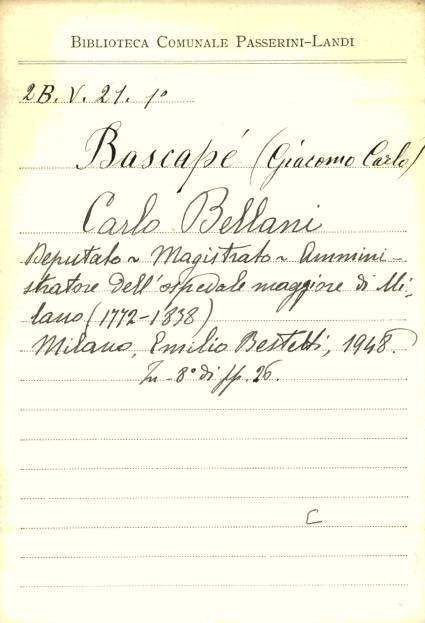 BIBLIOTECA COMUNALE PASSERINI-LANDI
2B. V. 21. 1º
Bascapé (Giacomo Carlo)
Carlo Bellani
Deputato ~ Magistrato ~ Ammini-
stratore dell'ospedale maggiore di Mi-
lano (1772-1838)
Milano, Emilio Bestetti, 1948.
In-8º di pp. 26.
C